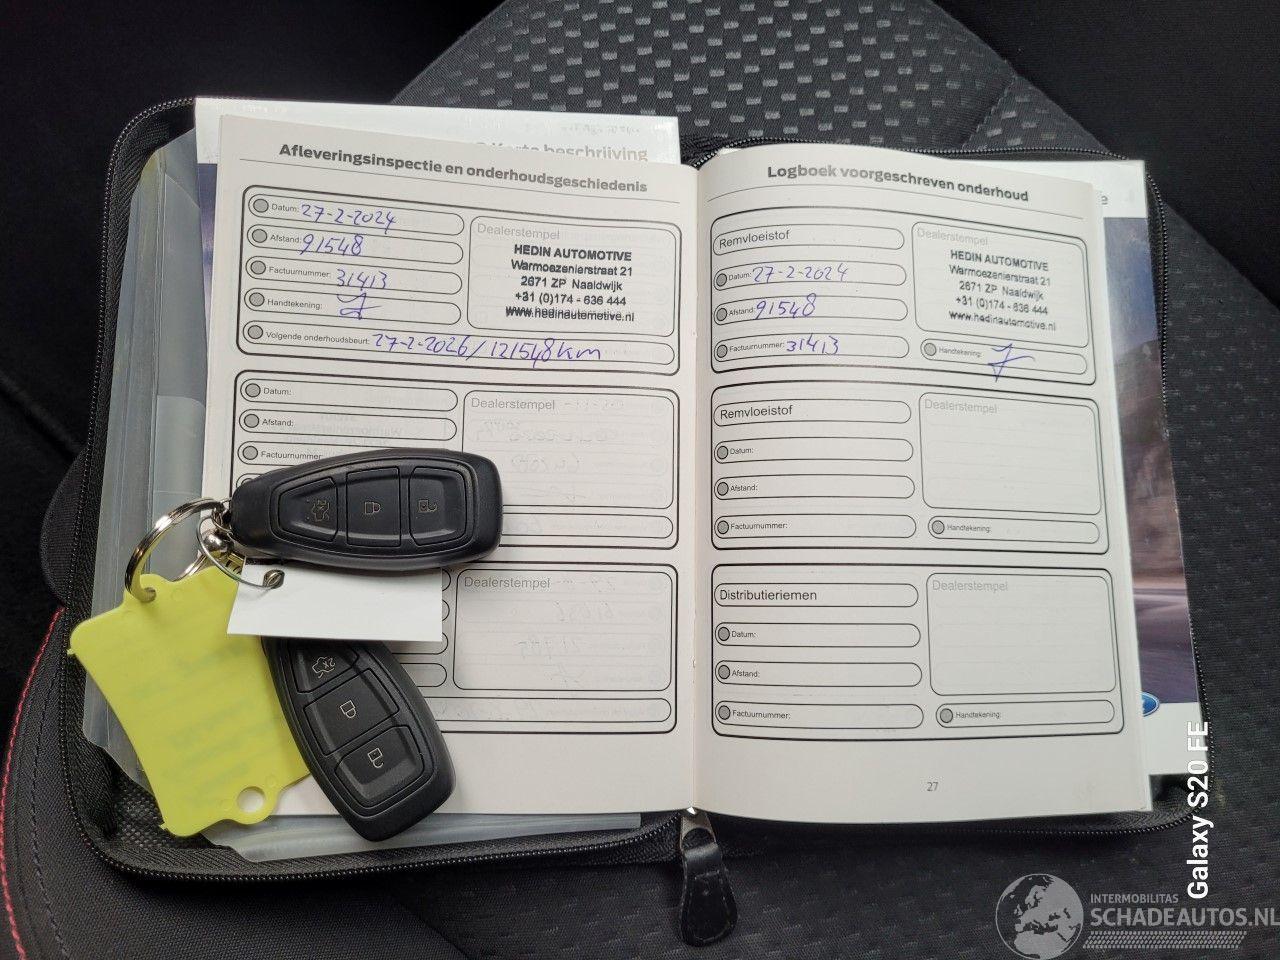 Korte beschrijving
Afleveringsinspectie en onderhoudsgeschiedenis
Datum: 27-2-2024
Afstand: 91548
Factuurnummer: 31413
Handtekening:
Volgende onderhoudsbeurt: 27-2-2026/121548km
Dealerstempel
HEDIN AUTOMOTIVE
Warmoezenierstraat 21
2671 ZP Naaldwijk
+31 (0)174 - 636 444
www.hedinautomotive.nl
Datum:
Afstand:
Factuurnummer:
Dealerstempel
Dealerstempel
2x
2x
Logboek voorgeschreven onderhoud
Remvloeistof
Datum: 27-2-2024
Afstand: 91548
Factuurnummer: 31413
Dealerstempel
HEDIN AUTOMOTIVE
Warmoezenierstraat 21
2671 ZP Naaldwijk
+31 (0)174 - 636 444
www.hedinautomotive.nl
Handtekening:
Remvloeistof
Datum:
Afstand:
Factuurnummer:
Dealerstempel
Handtekening:
Distributieriemen
Datum:
Afstand:
Factuurnummer:
Dealerstempel
Handtekening:
27
Galaxy S20 FE
INTERMOBILITAS
SCHADEAUTOS.NL